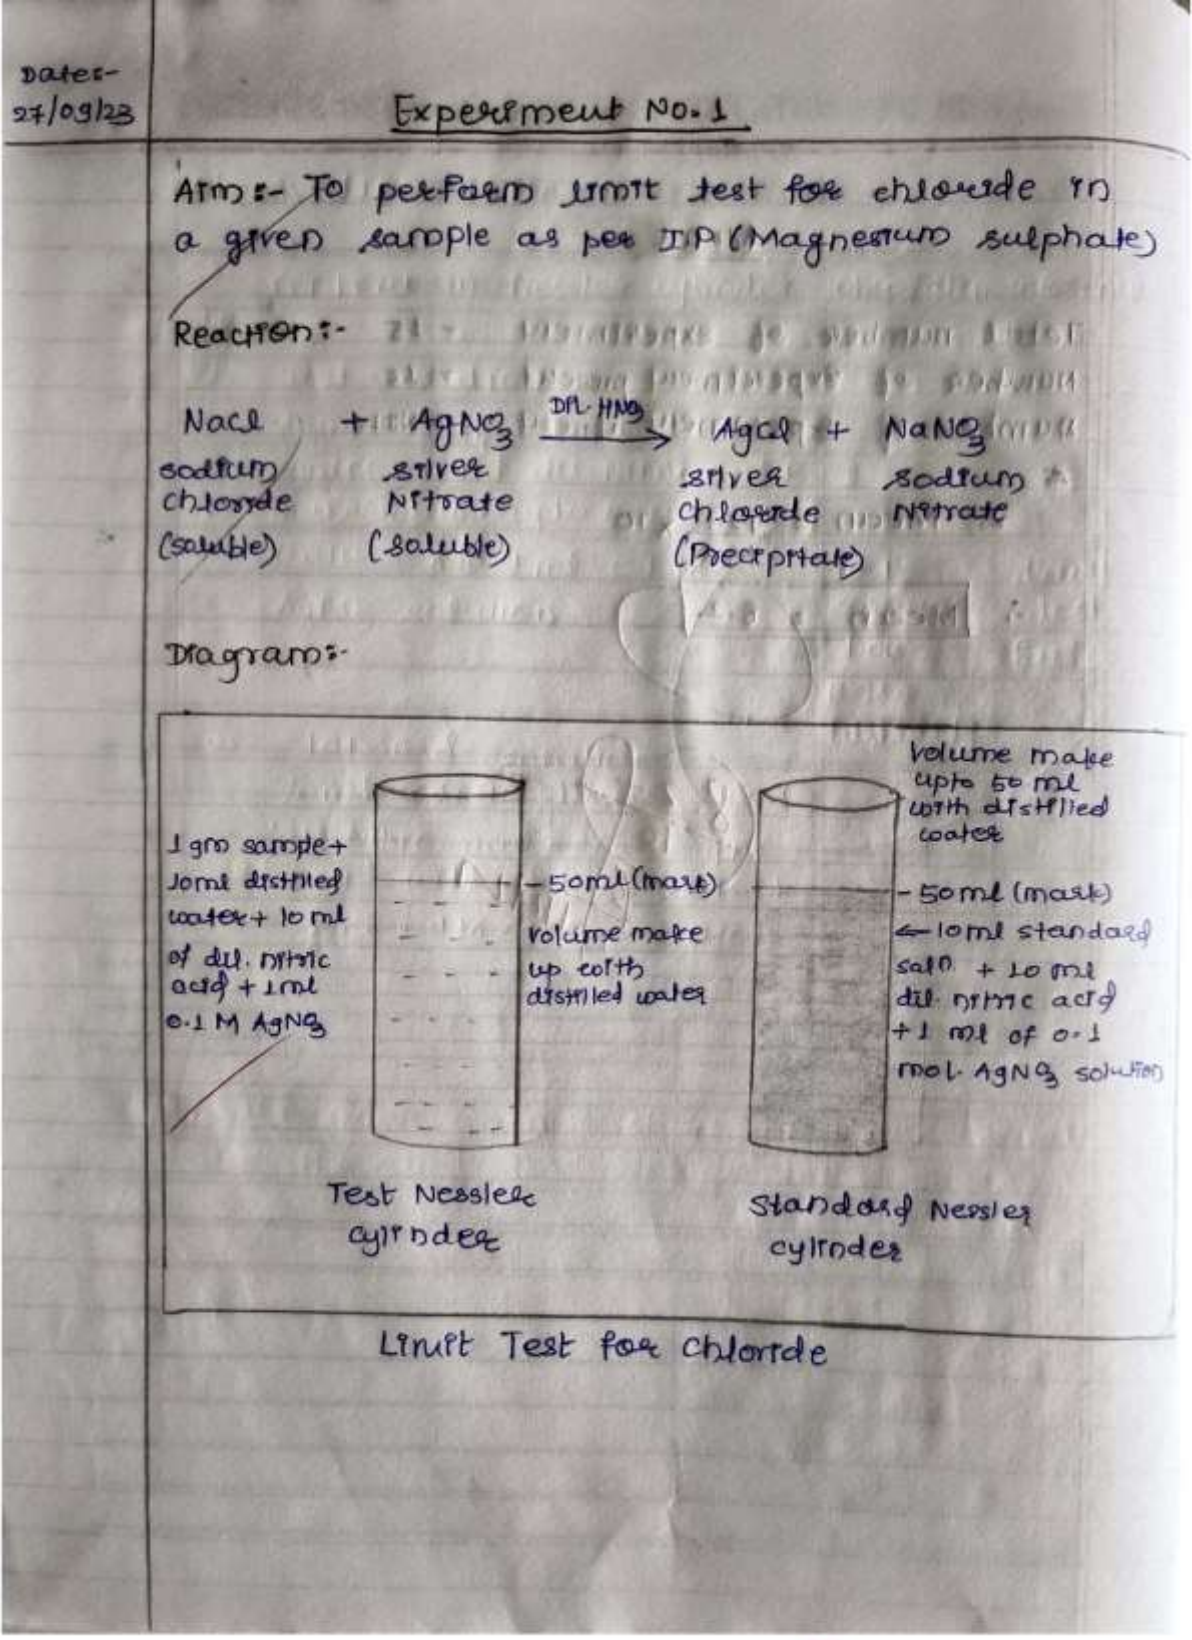 Date:-
27/09/23
Experiment No. 1
Aim:- To perform limit test for chloride in
a given sample as per IP (Magnesium sulphate)
Reaction:-
NaCl + AgNO3 Dil. HNO3 → AgCl + NaNO3
sodium silver silver sodium
chloride Nitrate chloride Nitrate
(soluble) (soluble) (Precipitate)
Diagram:-
1 gm sample +
10ml distilled
water + 10 ml
of dil. nitric
acid + 1ml
0.1 M AgNO3
- 50ml (mark)
volume make
up with
distilled water
Test Nessler
cylinder
volume make
upto 50 ml
with distilled
water
- 50ml (mark)
← 10ml standard
soln. + 10 ml
dil. nitric acid
+ 1 ml of 0.1
mol. AgNO3 solution
Standard Nessler
cylinder
Limit Test for Chloride